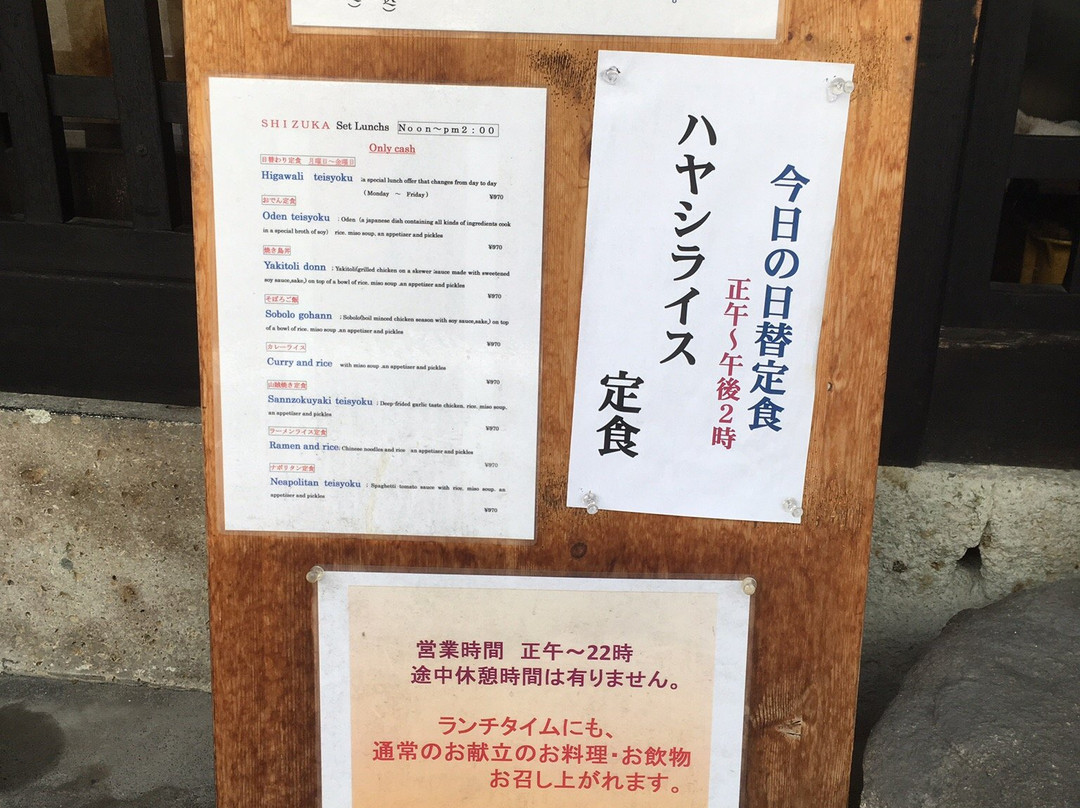 SHIZUKA Set Lunchs Noon～pm2：00
Only cash
日替わり定食 月曜日～金曜日
Higawali teisyoku ;a special lunch offer that changes from day to day
(Monday ～ Friday)
¥970
おでん定食
Oden teisyoku : Oden (a japanese dish containing all kinds of ingredients cook
in a special broth of soy) rice. miso soup, an appetizer and pickles
¥970
焼き鳥丼
Yakitoli donn ; Yakitoli(grilled chicken on a skewer )sauce made with sweetened
soy sauce,sake,) on top of a bowl of rice. miso soup .an appetizer and pickles
¥970
そぼろご飯
Sobolo gohann ; Sobolo(boil minced chicken season with soy sauce,sake,) on top
of a bowl of rice. miso soup .an appetizer and pickles
¥970
カレーライス
Curry and rice with miso soup .an appetizer and pickles
¥970
山賊焼き定食
Sannzokuyaki teisyoku ; Deep-frided garlic taste chicken. rice. miso soup.
an appetizer and pickles
¥970
ラーメンライス定食
Ramen and rice; Chinese noodles and rice an appetizer and pickles
¥970
ナポリタン定食
Neapolitan teisyoku ; Spaghetti tomato sauce with rice. miso soup. an
appetizer and pickles
¥970
今日の日替定食
正午～午後2時
ハヤシライス
定食
営業時間 正午～22時
途中休憩時間は有りません。
ランチタイムにも、
通常のお献立のお料理・お飲物
お召し上がれます。